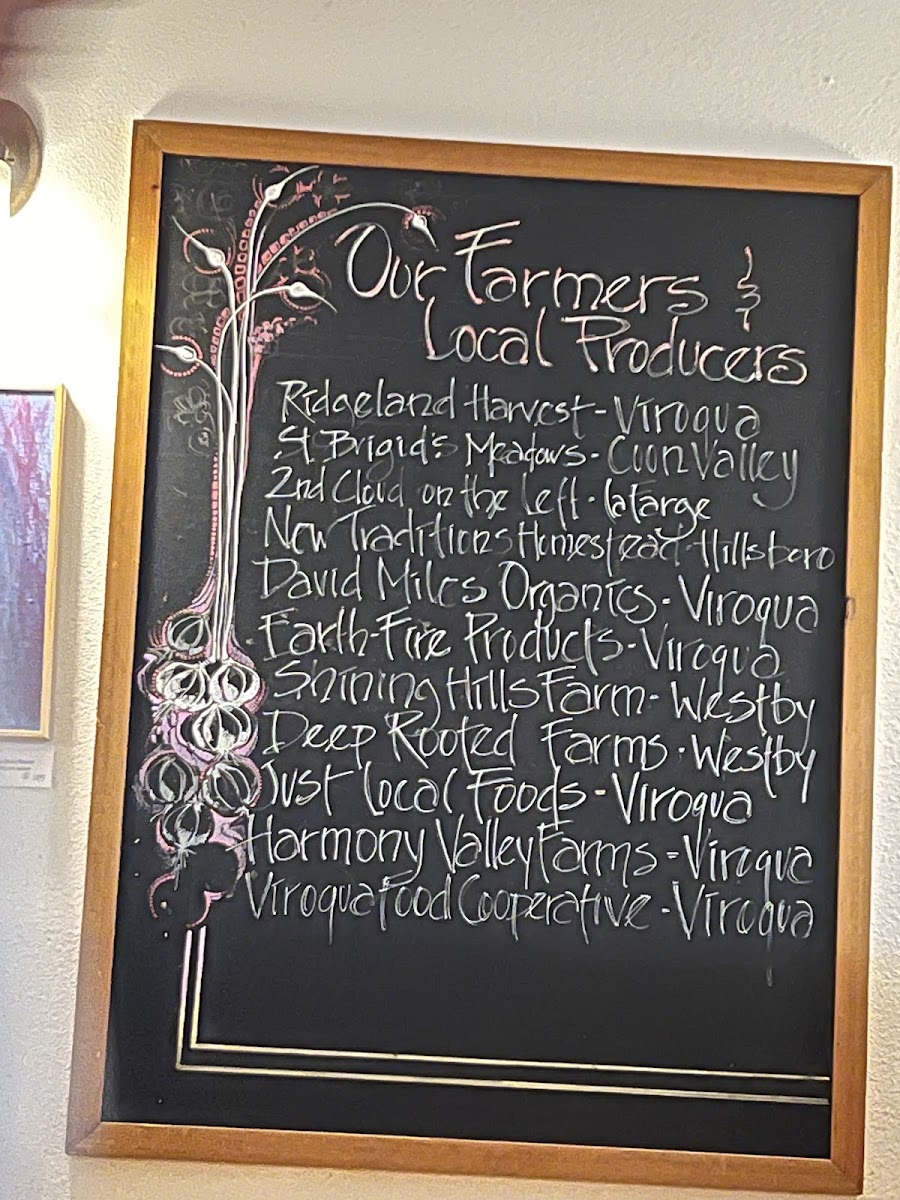 Our Farmers &
Local Producers
Ridgeland Harvest - Viroqua
St. Brigid's Meadows - Coon Valley
2nd Cloud on the Left - LaFarge
New Traditions Homestead - Hillsboro
David Miles Organics - Viroqua
Earth-Fire Products - Viroqua
Shining Hills Farm - Westby
Deep Rooted Farms - Westby
Just Local Foods - Viroqua
Harmony Valley Farms - Viroqua
Viroqua Food Cooperative - Viroqua